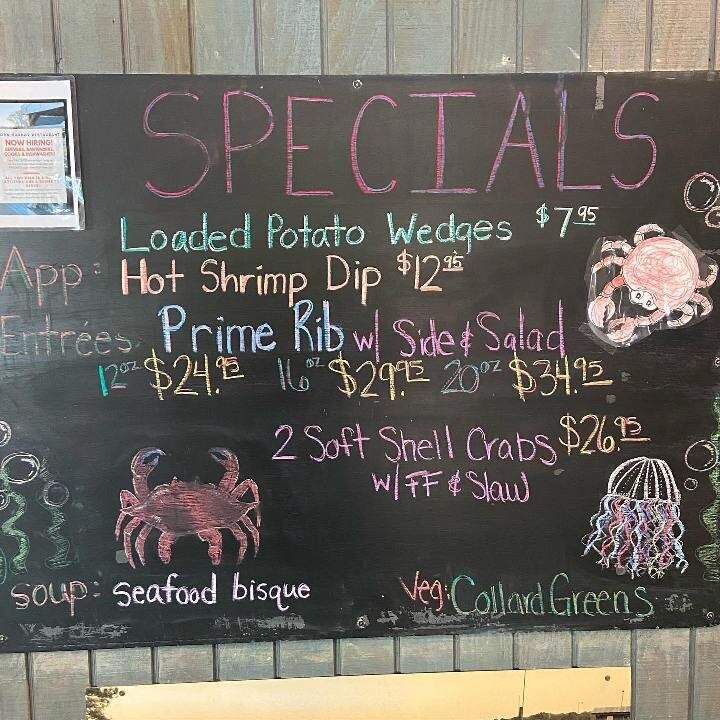 SPECIALS
NOW HIRING!
Loaded Potato Wedges $7.95
App: Hot Shrimp Dip $12.95
Entrées: Prime Rib w/ Side & Salad
12oz $24.95 16oz $29.95 20oz $34.95
2 Soft Shell Crabs $26.95
w/ FF & Slaw
soup: seafood bisque
Veg: Collard Greens